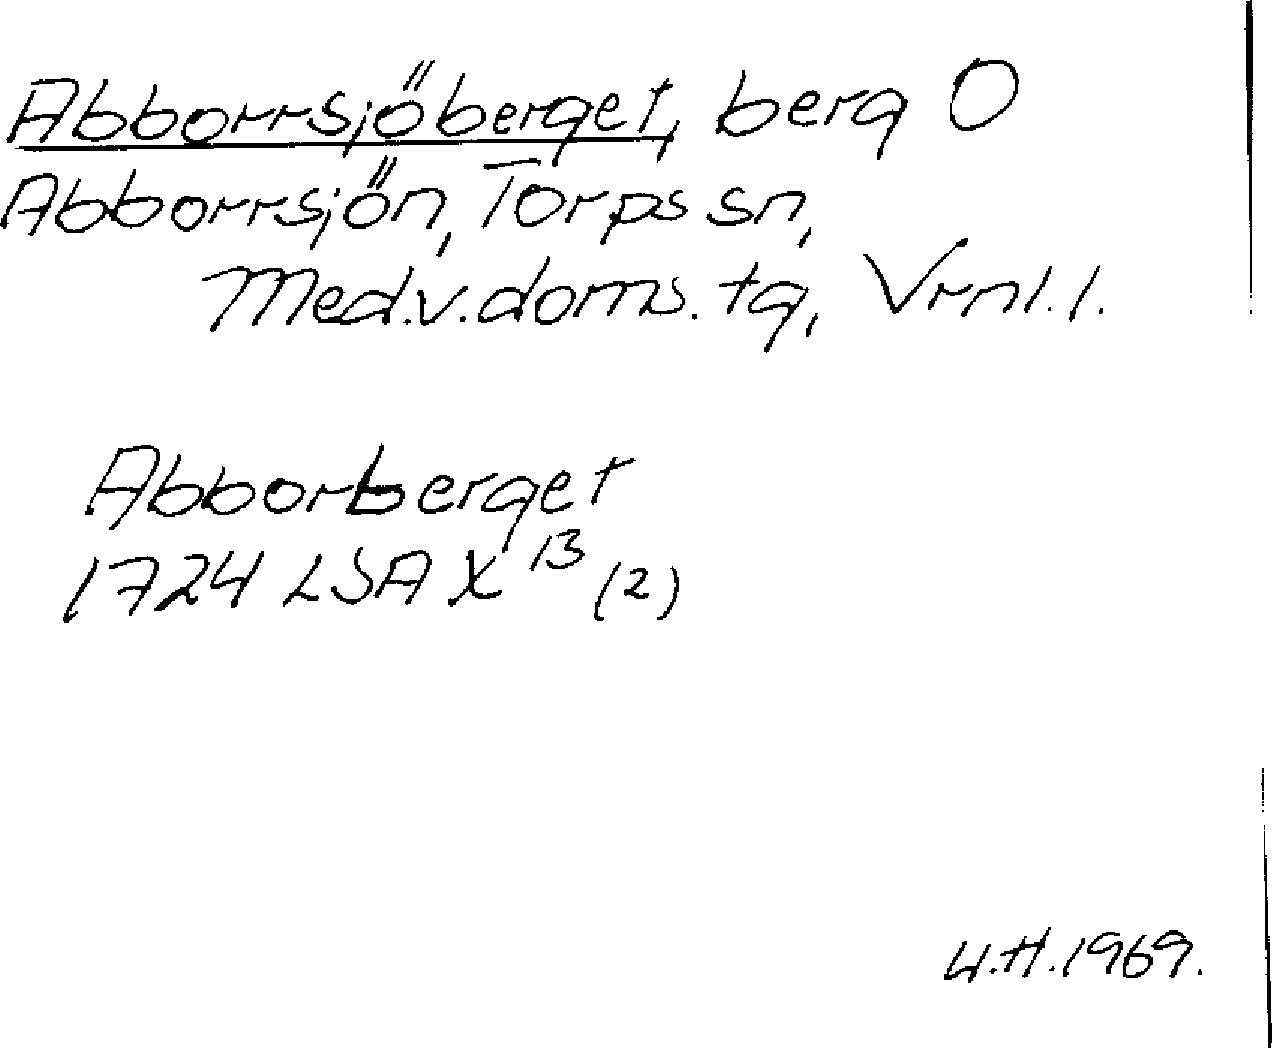 Abborrsjöberget, berg O
Abborrsjön, Torps sn,
Med.v.doms. tg, Vrnl.l.
Abborberget
1724 LSA X 13 (2)
U.H. 1969.